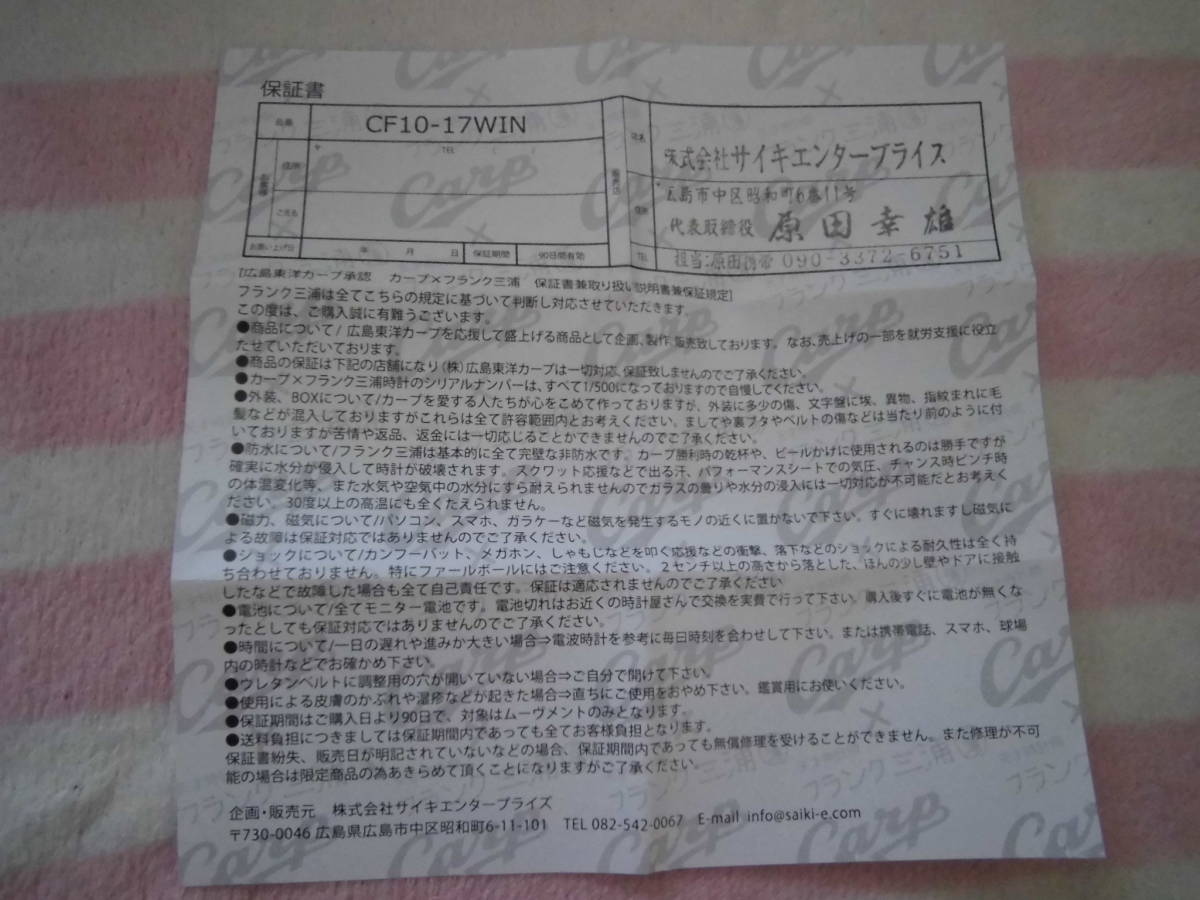 保証書
品番 CF10-17WIN
お客様 住所 〒 TEL ( )
ご氏名
お買い上げ日 年 月 日 保証期間 90日間有効
販売店 店名 株式会社サイキエンタープライズ
住所 〒 広島市中区昭和町6番11号
代表取締役 原田幸雄
TEL 担当:原田携帯 090-3372-6751
[広島東洋カープ承認 カープ×フランク三浦 保証書兼取り扱い説明書兼保証規定]
フランク三浦は全てこちらの規定に基づいて判断し対応させていただきます。
この度は、ご購入誠に有難うございます。
●商品について/ 広島東洋カープを応援して盛上げる商品として企画、製作、販売致しております。なお、売上げの一部を就労支援に役立
たせていただいております。
●商品の保証は下記の店舗になり(株)広島東洋カープは一切対応、保証致しませんのでご了承ください。
●カープ×フランク三浦時計のシリアルナンバーは、すべて1/500になっておりますので自慢してください。
●外装、BOXについて/カープを愛する人たちが心をこめて作っておりますが、外装に多少の傷、文字盤に埃、異物、指紋まれに毛
髪などが混入しておりますがこれらは全て許容範囲内とお考えください。ましてや裏ブタやベルトの傷などは当たり前のように付
いておりますが苦情や返品、返金には一切応じることができませんのでご了承ください。
●防水について/フランク三浦は基本的に全て完璧な非防水です。カープ勝利時の乾杯や、ビールかけに使用されるのは勝手ですが
確実に水分が侵入して時計が破壊されます。スクワット応援などで出る汗、パフォーマンスシートでの気圧、チャンス時ピンチ時
の体温変化等、また水気や空気中の水分にすら耐えられませんのでガラスの曇りや水分の浸入には一切対応が不可能だとお考えく
ださい。30度以上の高温にも全くたえられません。
●磁力、磁気について/パソコン、スマホ、ガラケーなど磁気を発生するモノの近くに置かないで下さい。すぐに壊れますし磁気に
よる故障は保証対応ではありませんのでご了承ください。
●ショックについて/カンフーバット、メガホン、しゃもじなどを叩く応援などの衝撃、落下などのショックによる耐久性は全く持
ち合わせておりません。特にファールボールにはご注意ください。２センチ以上の高さから落とした、ほんの少し壁やドアに接触
したなどで故障した場合も全て自己責任です。保証は適応されませんのでご了承ください
●電池について/全てモニター電池です。電池切れはお近くの時計屋さんで交換を実費で行って下さい。購入後すぐに電池が無くな
ったとしても保証対応ではありませんのでご了承ください。
●時間について/一日の遅れや進みが大きい場合⇒電波時計を参考に毎日時刻を合わせして下さい。または携帯電話、スマホ、球場
内の時計などでお確かめ下さい。
●ウレタンベルトに調整用の穴が開いていない場合⇒ご自分で開けて下さい。
●使用による皮膚のかぶれや湿疹などが起きた場合⇒直ちにご使用をおやめ下さい。鑑賞用にお使いください。
●保証期間はご購入日より90日で、対象はムーヴメントのみとなります。
●送料負担につきましては保証期間内であっても全てお客様負担となります。
保証書紛失、販売日が明記されていないなどの場合、保証期間内であっても無償修理を受けることができません。また修理が不可
能の場合は限定商品の為あきらめて頂くことになりますがご了承ください。
企画・販売元 株式会社サイキエンタープライズ
〒730-0046 広島県広島市中区昭和町6-11-101 TEL 082-542-0067 E-mail info@saiki-e.com